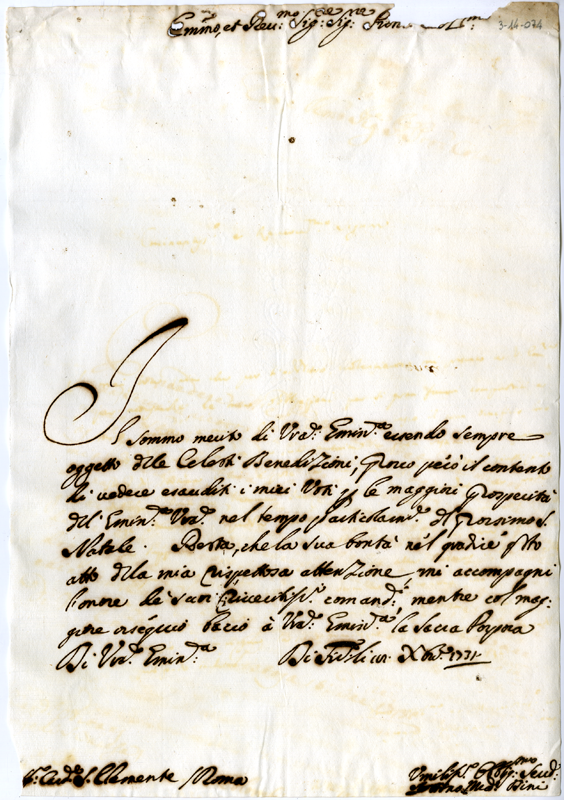 Emmo, et Reu:mo Sig: Sig: Pron
3-14-074
Il sommo merito di Vra: Emin:a essendo sempre
oggetto delle Celesti Benedizioni, però il contento
di vedere esauditi i miei Voti p le maggiori prosperità
dell'Emin:a Vra: nel tempo del prossimo S.
Natale. Resta, che la sua bontà nel gradire qsto
atto della mia rispettosa attenzione, mi accompagni
l'onore de suoi comand:i, mentre col mag-
giore ossequio bacio à Vra: Emin:a la Sacra Porpora
Di Vra: Emin:a Di Xbre: 1731
S: Clemente Roma
Umiliss: Obbl:mo Serv: